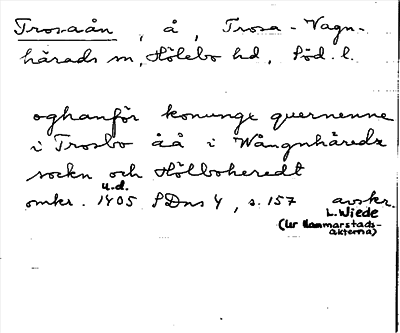 Trosaån, å, Trosa-Vagn-
härads sn, Hölebo hd, Söd. l.
oghanför konungx quernenne
i Trosbo åå i Wångnhäredz
sockn och Hölboheredt
u.d.
omkr. 1405 SDns 4, s. 157 avskr.
L. Wiede
(ur Hammarstads-
akterna)